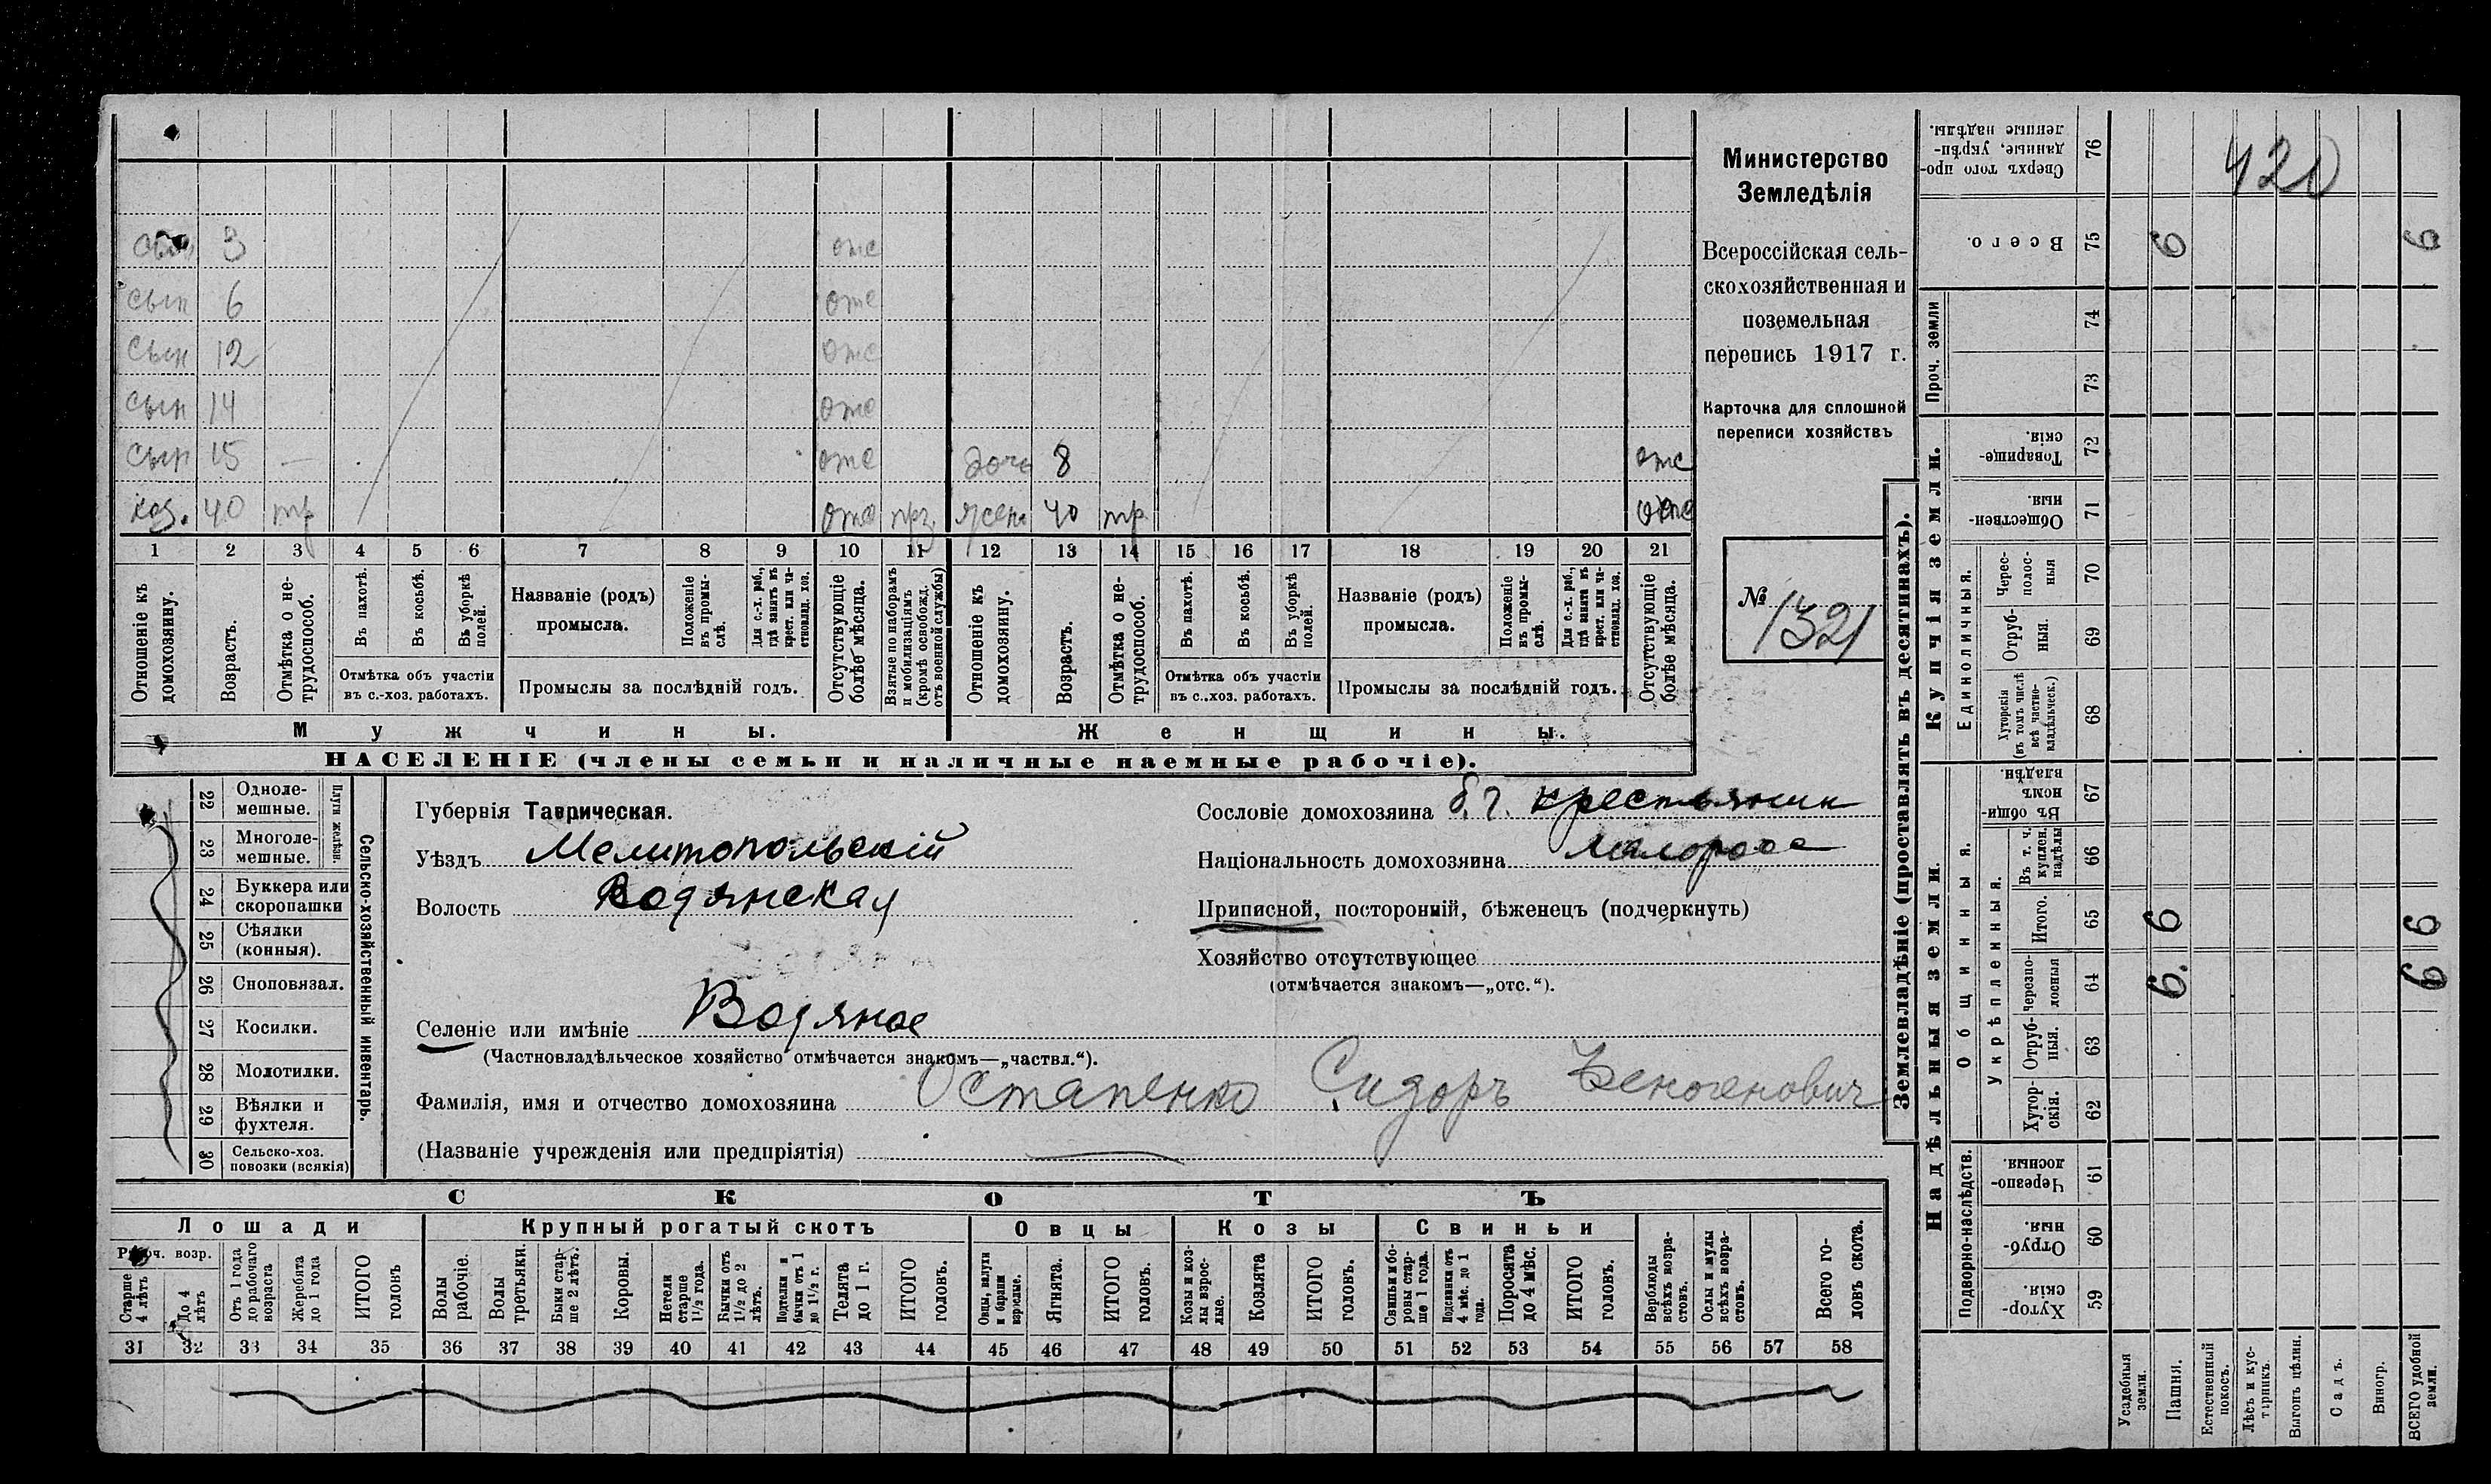 сын 3 отс
сын 6 отс
сын 12 отс
сын 14 отс
сын 15 — отс дочь 8 отс
хоз. 40 тр отс прз жена 40 тр. отс
1 2 3 4 5 6 7 8 9 10 11 12 13 14 15 16 17 18 19 20 21
Отношеніе къ домохозяину.
Возрастъ.
Отмѣтка о не-
трудоспособ.
Въ пахотѣ.
Въ косьбѣ.
Въ уборкѣ полей.
Отмѣтка объ участіи
въ с.-хоз. работахъ.
Названіе (родъ)
промысла.
Положеніе
въ промы-
слѣ.
Для с.-х. раб.,
гдѣ занятъ въ
крест. или ча-
стновлад. хоз.
Промыслы за послѣдній годъ.
Отсутствующіе
болѣе мѣсяца.
Взятые по наборамъ
и мобилизаціямъ
(кромѣ освобожд.
отъ военной службы)
Отношеніе къ
домохозяину.
Возрастъ.
Отмѣтка о не-
трудоспособ.
Въ пахотѣ.
Въ косьбѣ.
Въ уборкѣ
полей.
Отмѣтка объ участіи
въ с..хоз. работахъ.
Названіе (родъ)
промысла.
Положеніе
въ промы-
слѣ.
Для с.-х. раб.,
гдѣ занята въ
крест. или ча-
стновлад. хоз.
Промыслы за послѣдній годъ.
Отсутствующіе
болѣе мѣсяца.
Мужчины.
Женщины.
НАСЕЛЕНІЕ (члены семьи и наличные наемные рабочіе).
Министерство
Земледѣлія
Всероссійская сель-
скохозяйственная и
поземельная
перепись 1917 г.
Карточка для сплошной
переписи хозяйствъ
№ 1321
22 Одноле-
мешные.
23 Многоле-
мешные.
Плуги желѣз.
24 Буккера или
скоропашки
25 Сѣялки
(конныя).
26 Сноповязал.
27 Косилки.
28 Молотилки.
29 Вѣялки и
фухтеля.
30 Сельско-хоз.
повозки (всякія)
Сельско-хозяйственный инвентарь.
Губернія Таврическая.
Уѣздъ Мелитопольскій
Волость Водянская
Селеніе или имѣніе Водяное
(Частновладѣльческое хозяйство отмѣчается знакомъ—„частвл.“).
Сословіе домохозяина б. г. крестьянин
Національность домохозяина малоросс
Приписной, посторонній, бѣженецъ (подчеркнуть)
Хозяйство отсутствующее
(отмѣчается знакомъ—„отс.“).
Фамилія, имя и отчество домохозяина Остапенко Сидоръ Зеногенович
(Названіе учрежденія или предпріятія)
СКОТЪ
Лошади
Крупный рогатый скотъ
Овцы
Козы
Свиньи
Рабоч. возр.
Старше
4 лѣтъ
До 4
лѣтъ
Отъ 1 года
до рабочаго
возраста
Жеребята
до 1 года
ИТОГО
головъ
Волы
рабочіе.
Волы
третьяки.
Быки стар-
ше 2 лѣтъ.
Коровы.
Нетели
старше
1½ года.
Бычки отъ
1½ до 2
лѣтъ.
Подтелки и
бычки отъ 1
до 1½ г.
Телята
до 1 г.
ИТОГО
головъ.
Овцы, валухи
и бараны
взрослые.
Ягнята.
ИТОГО
головъ.
Козы и коз-
лы взрос-
лые.
Козлята
ИТОГО
головъ.
Свиньи и бо-
ровы стар-
ше 1 года.
Подсвинки отъ
4 мѣс. до 1
года.
Поросята
до 4 мѣс.
ИТОГО
головъ.
Верблюды
всѣхъ возра-
стовъ.
Ослы и мулы
всѣхъ возра-
стовъ.
Всего го-
ловъ скота.
31 32 33 34 35 36 37 38 39 40 41 42 43 44 45 46 47 48 49 50 51 52 53 54 55 56 57 58
Землевладѣніе (проставлять въ десятинахъ).
Надѣльныя земли.
Купчія земли.
Проч. земли
Подворно-наслѣдств.
Общинныя.
Укрѣпленныя.
Единоличныя.
Сверхъ того про-
данные, укрѣп-
ленные надѣлы.
76
420
Всего.
75 6 6
74
73
Товарище-
скія.
72
Обществен-
ныя.
71
Черес-
полос-
ныя
70
Отруб-
ныя.
69
Хуторскія
(въ томъ числѣ
всѣ частно-
владѣльческ.)
68
Въ общи-
номъ
владѣн.
67
Въ т. ч.
куплен.
надѣлы
66
Итого.
65 6 6
Черезпо-
лосныя
64 6. 6
Отруб-
ныя.
63
Хутор-
скія.
62
Черезпо-
лосныя.
61
Отруб-
ныя.
60
Хутор-
скія.
59
Усадебныя
земли.
Пашня.
Естественный
покосъ.
Лѣсъ и кус-
тарникъ.
Выгонъ цѣлин.
Садъ.
Виногр.
ВСЕГО удобной
земли.